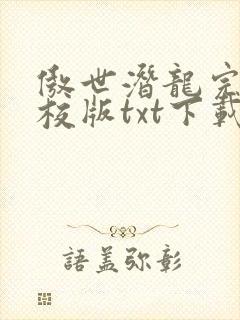 傲世潛龍完
校版txt下載
語蓋弥彰